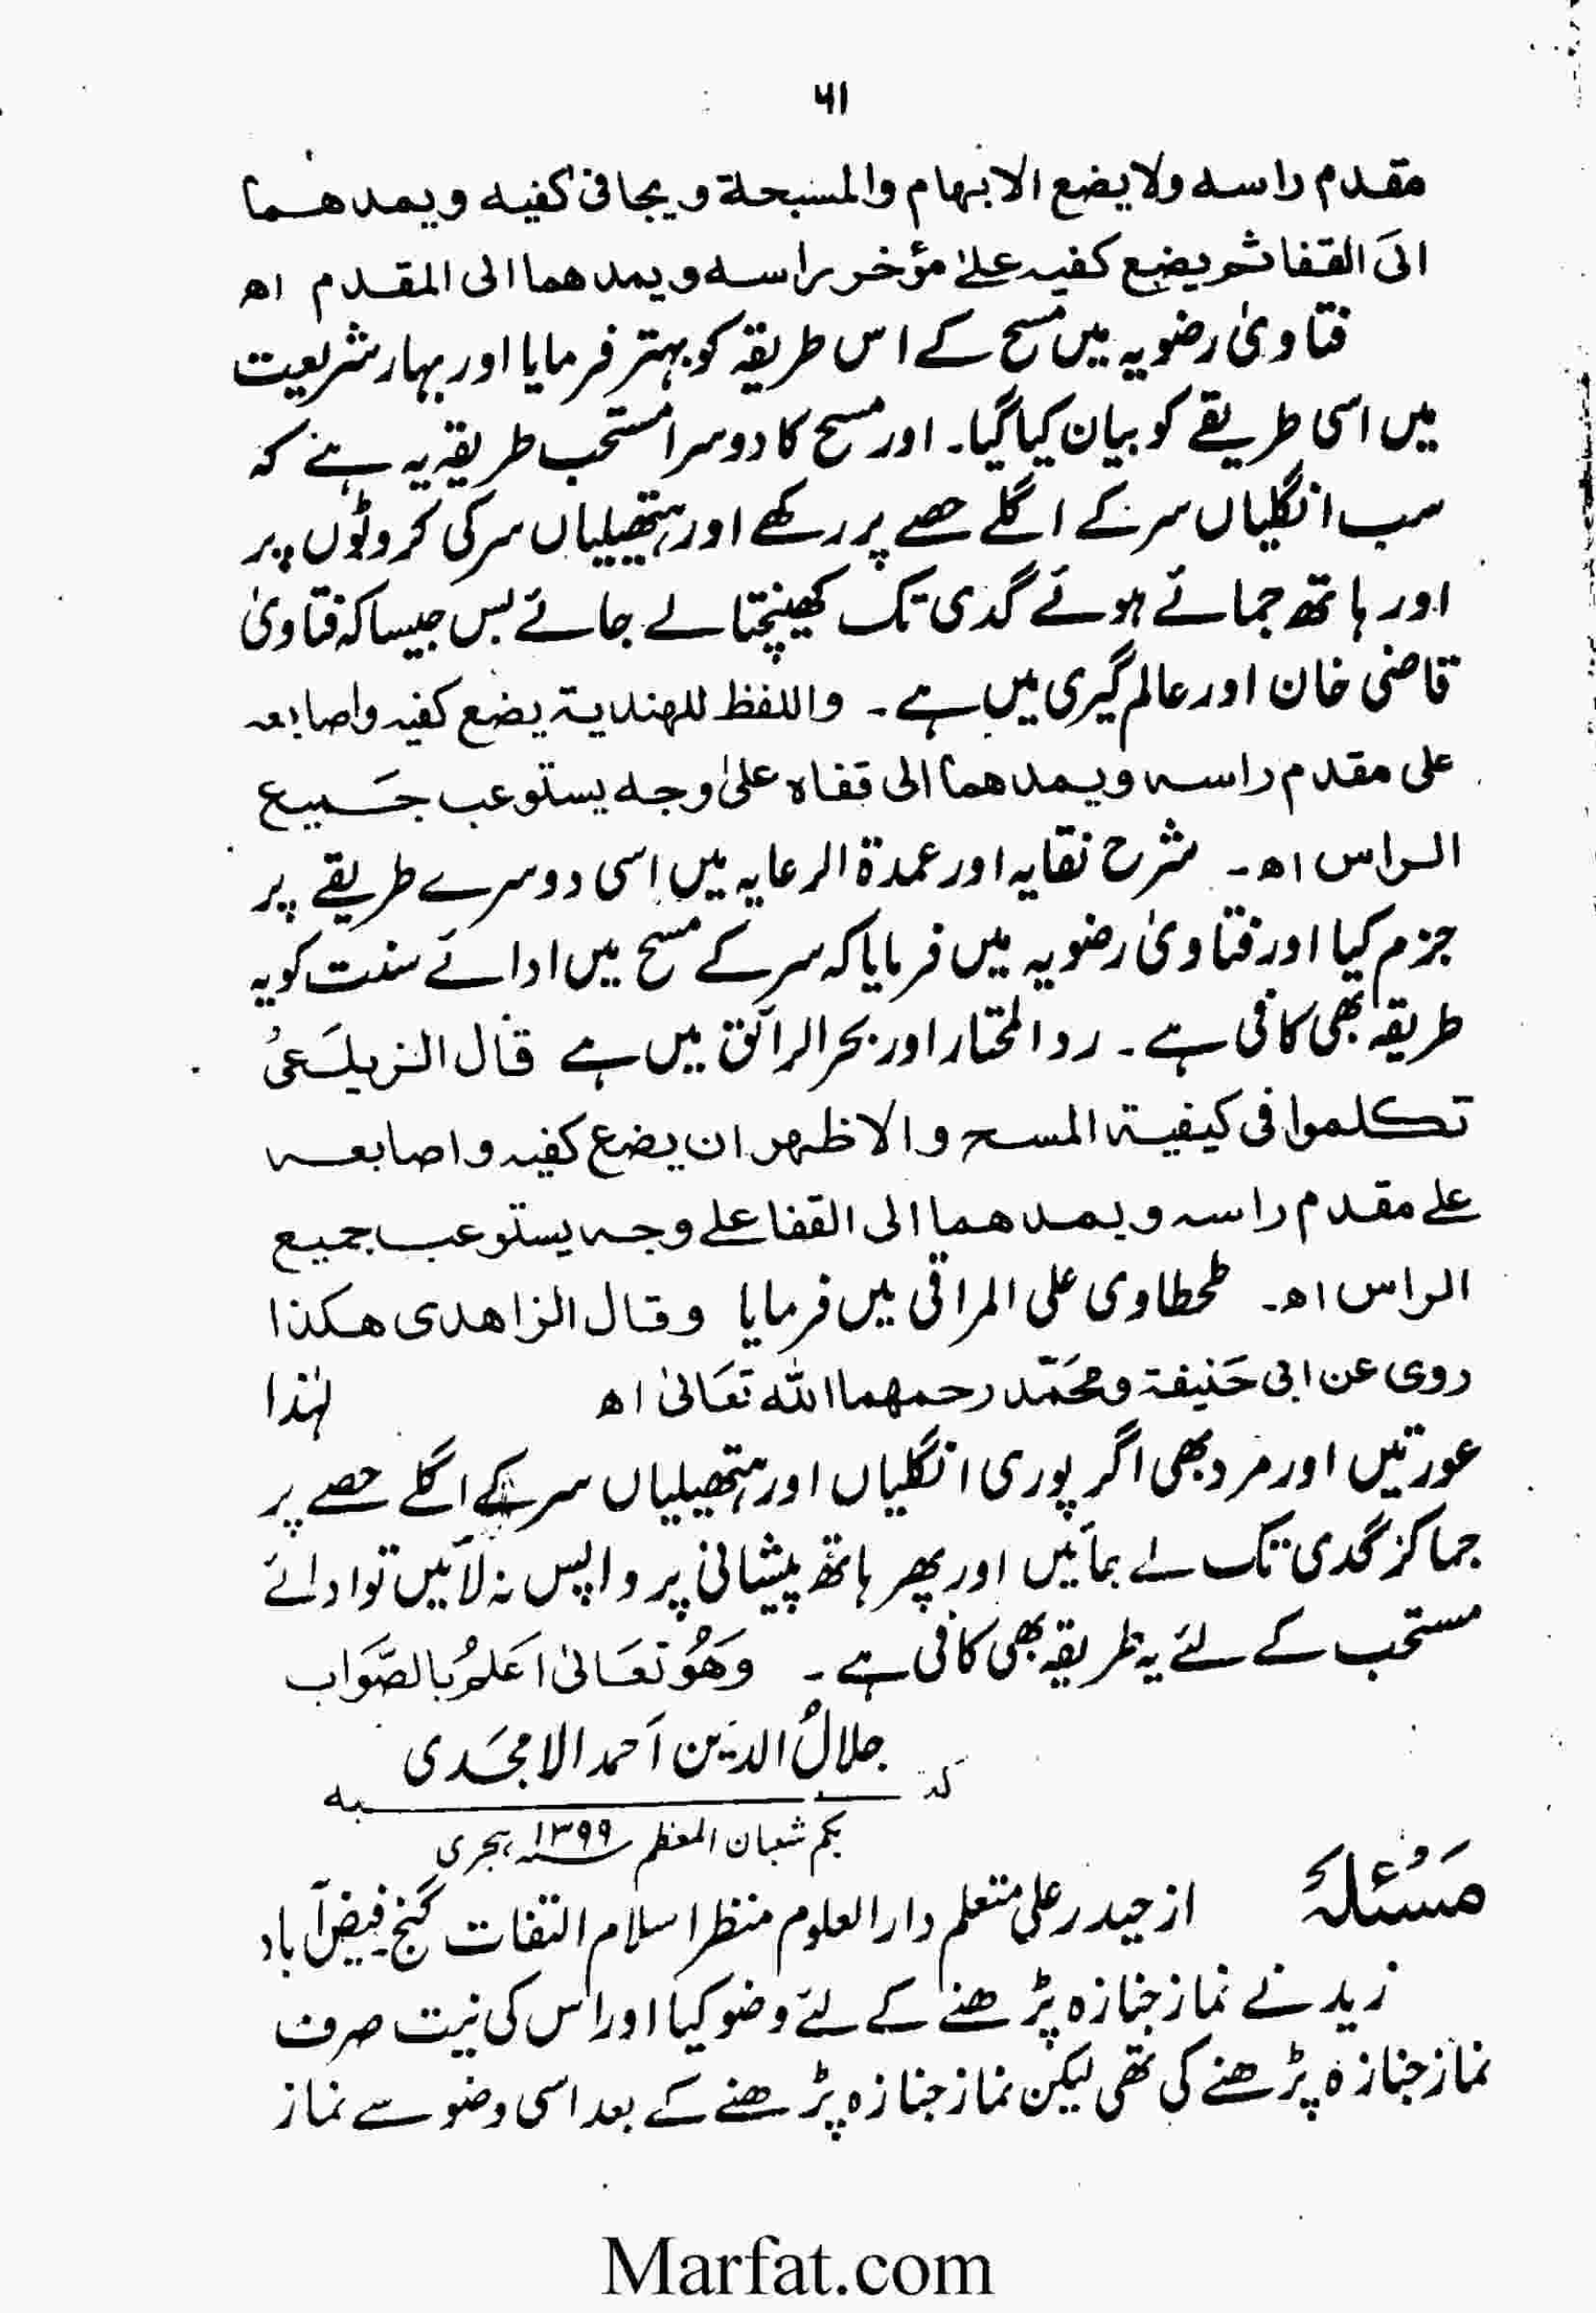 ۶۱
مقدم راسه ولا يضع الابهام والمسبحة و يجافى كفيه ويمدهما
الىَ القفا ثم يضع كفيه علىٰ مؤخر راسه ويمدهما الى المقدم اھ
فتاویٰ رضویہ میں مسح کے اس طریقہ کو بہتر فرمایا اور بہار شریعت
میں اسی طریقے کو بیان کیا گیا۔ اور مسح کا دوسرا مستحب طریقہ یہ ہے کہ
سب انگلیاں سر کے اگلے حصے پر رکھے اور ہتھیلیاں سر کی کروٹوں پر
اور ہاتھ جمائے ہوئے گدی تک کھینچتا لے جائے بس جیسا کہ فتاویٰ
قاضی خان اور عالم گیری میں ہے۔ واللفظ للهندية يضع كفيه واصابعه
على مقدم راسه ويمدهما الى قفاه علىٰ وجه يستوعب جَميع
الراس اھ۔ شرح نقایہ اور عمدۃ الرعایہ میں اسی دوسرے طریقے پر
جزم کیا اور فتاویٰ رضویہ میں فرمایا کہ سر کے مسح میں ادائے سنت کو یہ
طریقہ بھی کافی ہے۔ رد المحتار اور بحر الرائق میں ہے قال الزيلَعىُ
تكلموا فى كيفية المسح والاظهر ان يضع كفيه واصابعه
علے مقدم راسه ويمدهما الى القفا علے وجه يستوعب جميع
الراس اھ۔ طحطاوی علی المراقی میں فرمایا وقال الزاهدى هكذا
روى عن ابى حَنيفة ومحَمّد رحمهما الله تعَالىٰ اھ لہٰذا
عورتیں اور مرد بھی اگر پوری انگلیاں اور ہتھیلیاں سر کے اگلے حصے پر
جما کر گدی تک لے جائیں اور پھر ہاتھ پیشانی پر واپس نہ لائیں تو ادائے
مستحب کے لئے یہ طریقہ بھی کافی ہے۔ وَهُوَ تعَالىٰ اَعلمُ بالصَّوَاب
جلالُ الدین اَحمد الامجَدی
کتبہ
یکم شعبان المعظم ۱۳۹۹؁ ہجری
مَسْئلهُ از حیدر علی متعلم دارالعلوم منظر اسلام التفات گنج۔ فیض آباد
زید نے نماز جنازہ پڑھنے کے لئے وضو کیا اور اس کی نیت صرف
نماز جنازہ پڑھنے کی تھی لیکن نماز جنازہ پڑھنے کے بعد اسی وضو سے نماز
Marfat.com